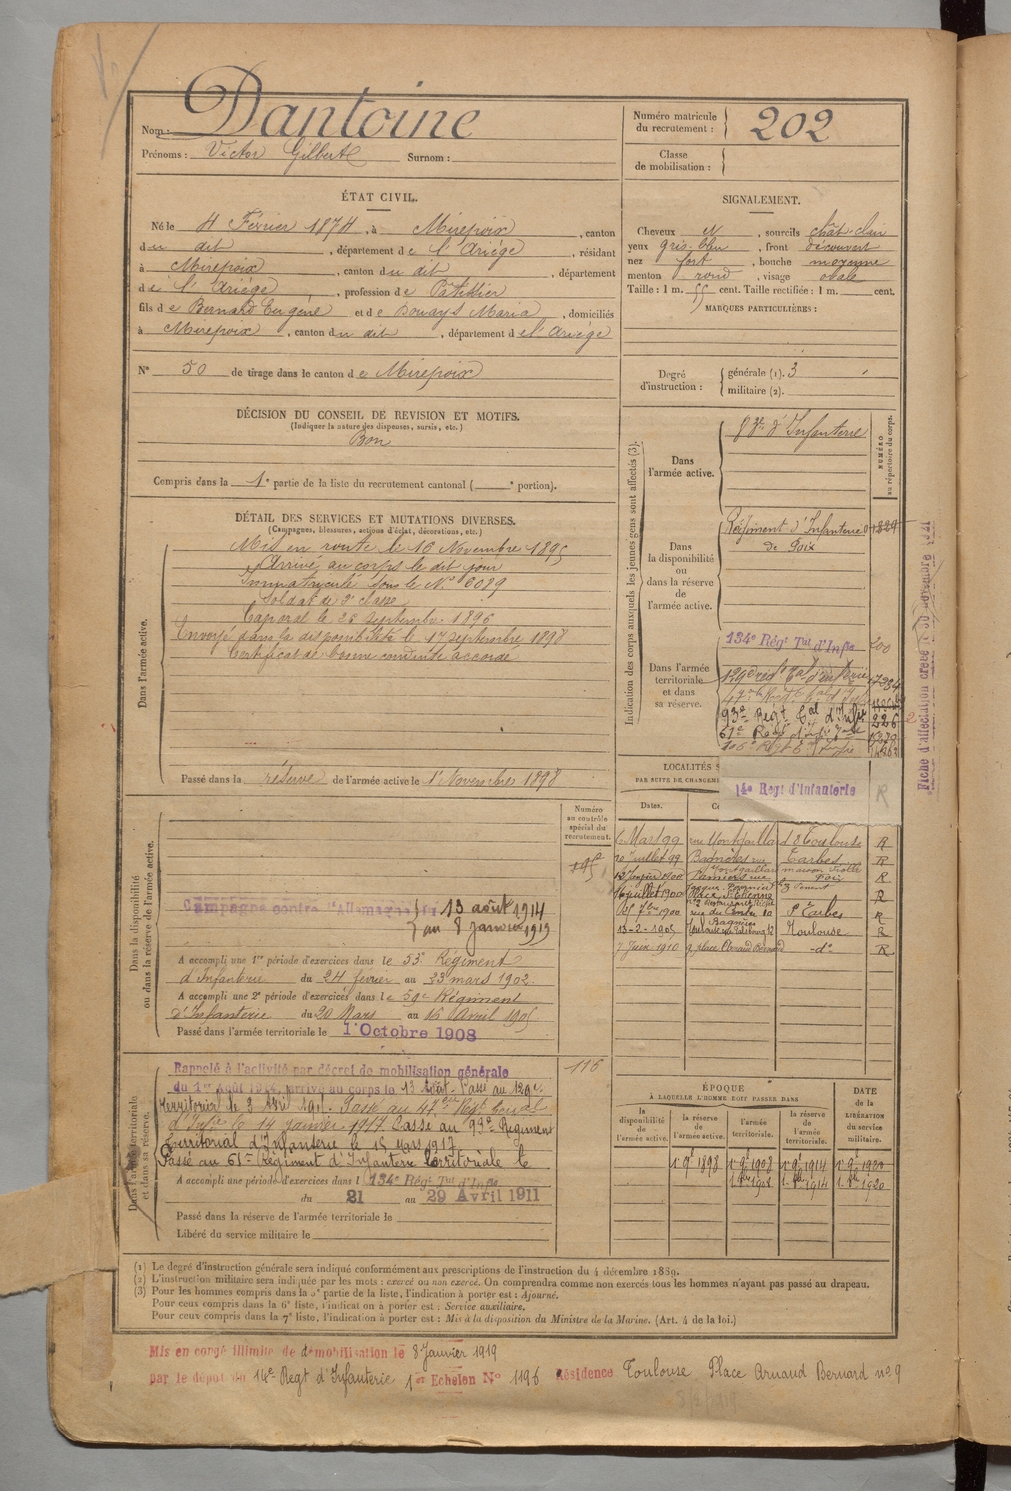 Nom : Dantoine
Prénoms : Victor Gilbert Surnom :
Numéro matricule du recrutement : 202
Classe de mobilisation :
ÉTAT CIVIL.
Né le 4 Février 1874, à Mirepoix, canton
du dit, département de l'Ariège, résidant
à Mirepoix, canton du dit, département
de l'Ariège, profession de Patissier
fils de Bernard Eugène et de Douays Maria, domiciliés
à Mirepoix, canton du dit, département de l'Ariège
N° 50 de tirage dans le canton de Mirepoix
SIGNALEMENT.
Cheveux N, sourcils chât-clair
yeux gris-bleu, front découvert
nez fort, bouche moyenne
menton rond, visage ovale
Taille : 1 m. 55 cent. Taille rectifiée : 1 m. cent.
MARQUES PARTICULIÈRES :
Degré d'instruction : générale (1). 3
militaire (2).
DÉCISION DU CONSEIL DE REVISION ET MOTIFS.
(Indiquer la nature des dispenses, sursis, etc.)
Bon
Compris dans la 1e partie de la liste du recrutement cantonal ( e portion).
DÉTAIL DES SERVICES ET MUTATIONS DIVERSES.
(Campagnes, blessures, actions d'éclat, décorations, etc.)
Dans l'armée active.
Mis en route le 16 Novembre 1895
Arrivé au corps le dit jour
Immatriculé sous le N°
Soldat de 2e classe
Caporal le 28 Septembre 1896
Envoyé dans la disponibilité le 17 septembre 1898
Certificat de bonne conduite accordé
Passé dans la réserve de l'armée active le 1er Novembre 1898
Indication des corps auxquels les jeunes gens sont affectés (3).
NUMÉRO au répertoire du corps.
Dans l'armée active.
83e d'Infanterie
Dans la disponibilité ou dans la réserve de l'armée active.
Régiment d'Infanterie
de Foix
Dans l'armée territoriale et dans sa réserve.
134e Régt Tal d'Infie 200
129e Regt Tal d'Infanterie
93e Regt Tal d'Infie 226
14e Regt d'Infanterie R
Fiche d'affectation créée le 30 novembre 1921
LOCALITÉS S
PAR SUITE DE CHANGEM
Dates.
6 Mars 99 rue Montgaillard Toulouse R
20 Juillet 99 Bagnères Tarbes R
13 Janvier 1900 Pamiers Foix R
16 Juillet 1900 R
1900 Tarbes R
13-2-1905 Toulouse R
7 Juin 1910 9 place Arnaud Bernard -do- R
Dans la disponibilité ou dans la réserve de l'armée active.
Numéro au contrôle spécial du recrutement.
Campagne contre l'Allemagne du 13 août 1914
au 8 janvier 1919
A accompli une 1re période d'exercices dans le 53e Régiment
d'Infanterie du 24 février au 23 mars 1902
A accompli une 2e période d'exercices dans le 59e Régiment
d'Infanterie du 20 Mars au 16 Avril 1905
Passé dans l'armée territoriale le 1er Octobre 1908
Dans l'armée territoriale et dans sa réserve.
116
Rappelé à l'activité par décret de mobilisation générale
du 1er Août 1914, arrivé au corps le 13 août - Passé au 129e
territorial le 3 Avril 191 . Passé au 47e Regt territorial
d'Infie le 14 janvier 1917. Passé au 93e Régiment
Territorial d'Infanterie le 15 mars 1917
Passé au 61e Régiment d'Infanterie territoriale le
A accompli une période d'exercices dans l 134e Régt Tal d'Infie
du 21 au 29 Avril 1911
Passé dans la réserve de l'armée territoriale le
Libéré du service militaire le
ÉPOQUE
À LAQUELLE L'HOMME DOIT PASSER DANS
la disponibilité de l'armée active.
la réserve de l'armée active.
l'armée territoriale.
la réserve de l'armée territoriale.
DATE de la LIBÉRATION du service militaire.
1er 9bre 1898 1er 9bre 1908 1er 9bre 1914 1er 9bre 1920
1er 8bre 1908 1er 8bre 1914 1er 8bre 1920
(1) Le degré d'instruction générale sera indiqué conformément aux prescriptions de l'instruction du 4 décembre 1889.
(2) L'instruction militaire sera indiquée par les mots : exercé ou non exercé. On comprendra comme non exercés tous les hommes n'ayant pas passé au drapeau.
(3) Pour les hommes compris dans la 5e partie de la liste, l'indication à porter est : Ajourné.
Pour ceux compris dans la 6e liste, l'indication à porter est : Service auxiliaire.
Pour ceux compris dans la 7e liste, l'indication à porter est : Mis à la disposition du Ministre de la Marine. (Art. 4 de la loi.)
Mis en congé illimité de démobilisation le 8 Janvier 1919
par le dépôt du 14e Regt d'Infanterie 1er Echelon N° 1196 Résidence Toulouse Place Arnaud Bernard n° 9